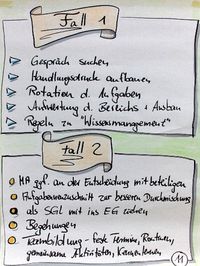 Fall 1
Gespräch suchen
Handlungsdruck aufbauen
Rotation d. Aufgaben
Aufwertung d. Bereichs + Ausbau
Regeln zu "Wissensmanagement"
Fall 2
MA ggf. an der Entscheidung mit beteiligen
Aufgabenzuschnitt zur besseren Durchmischung
als SGL mit ins EG ziehen
Begehungen
Teambildung - feste Termine, Routinen,
gemeinsame Aktivitäten, Kennenlernen
11